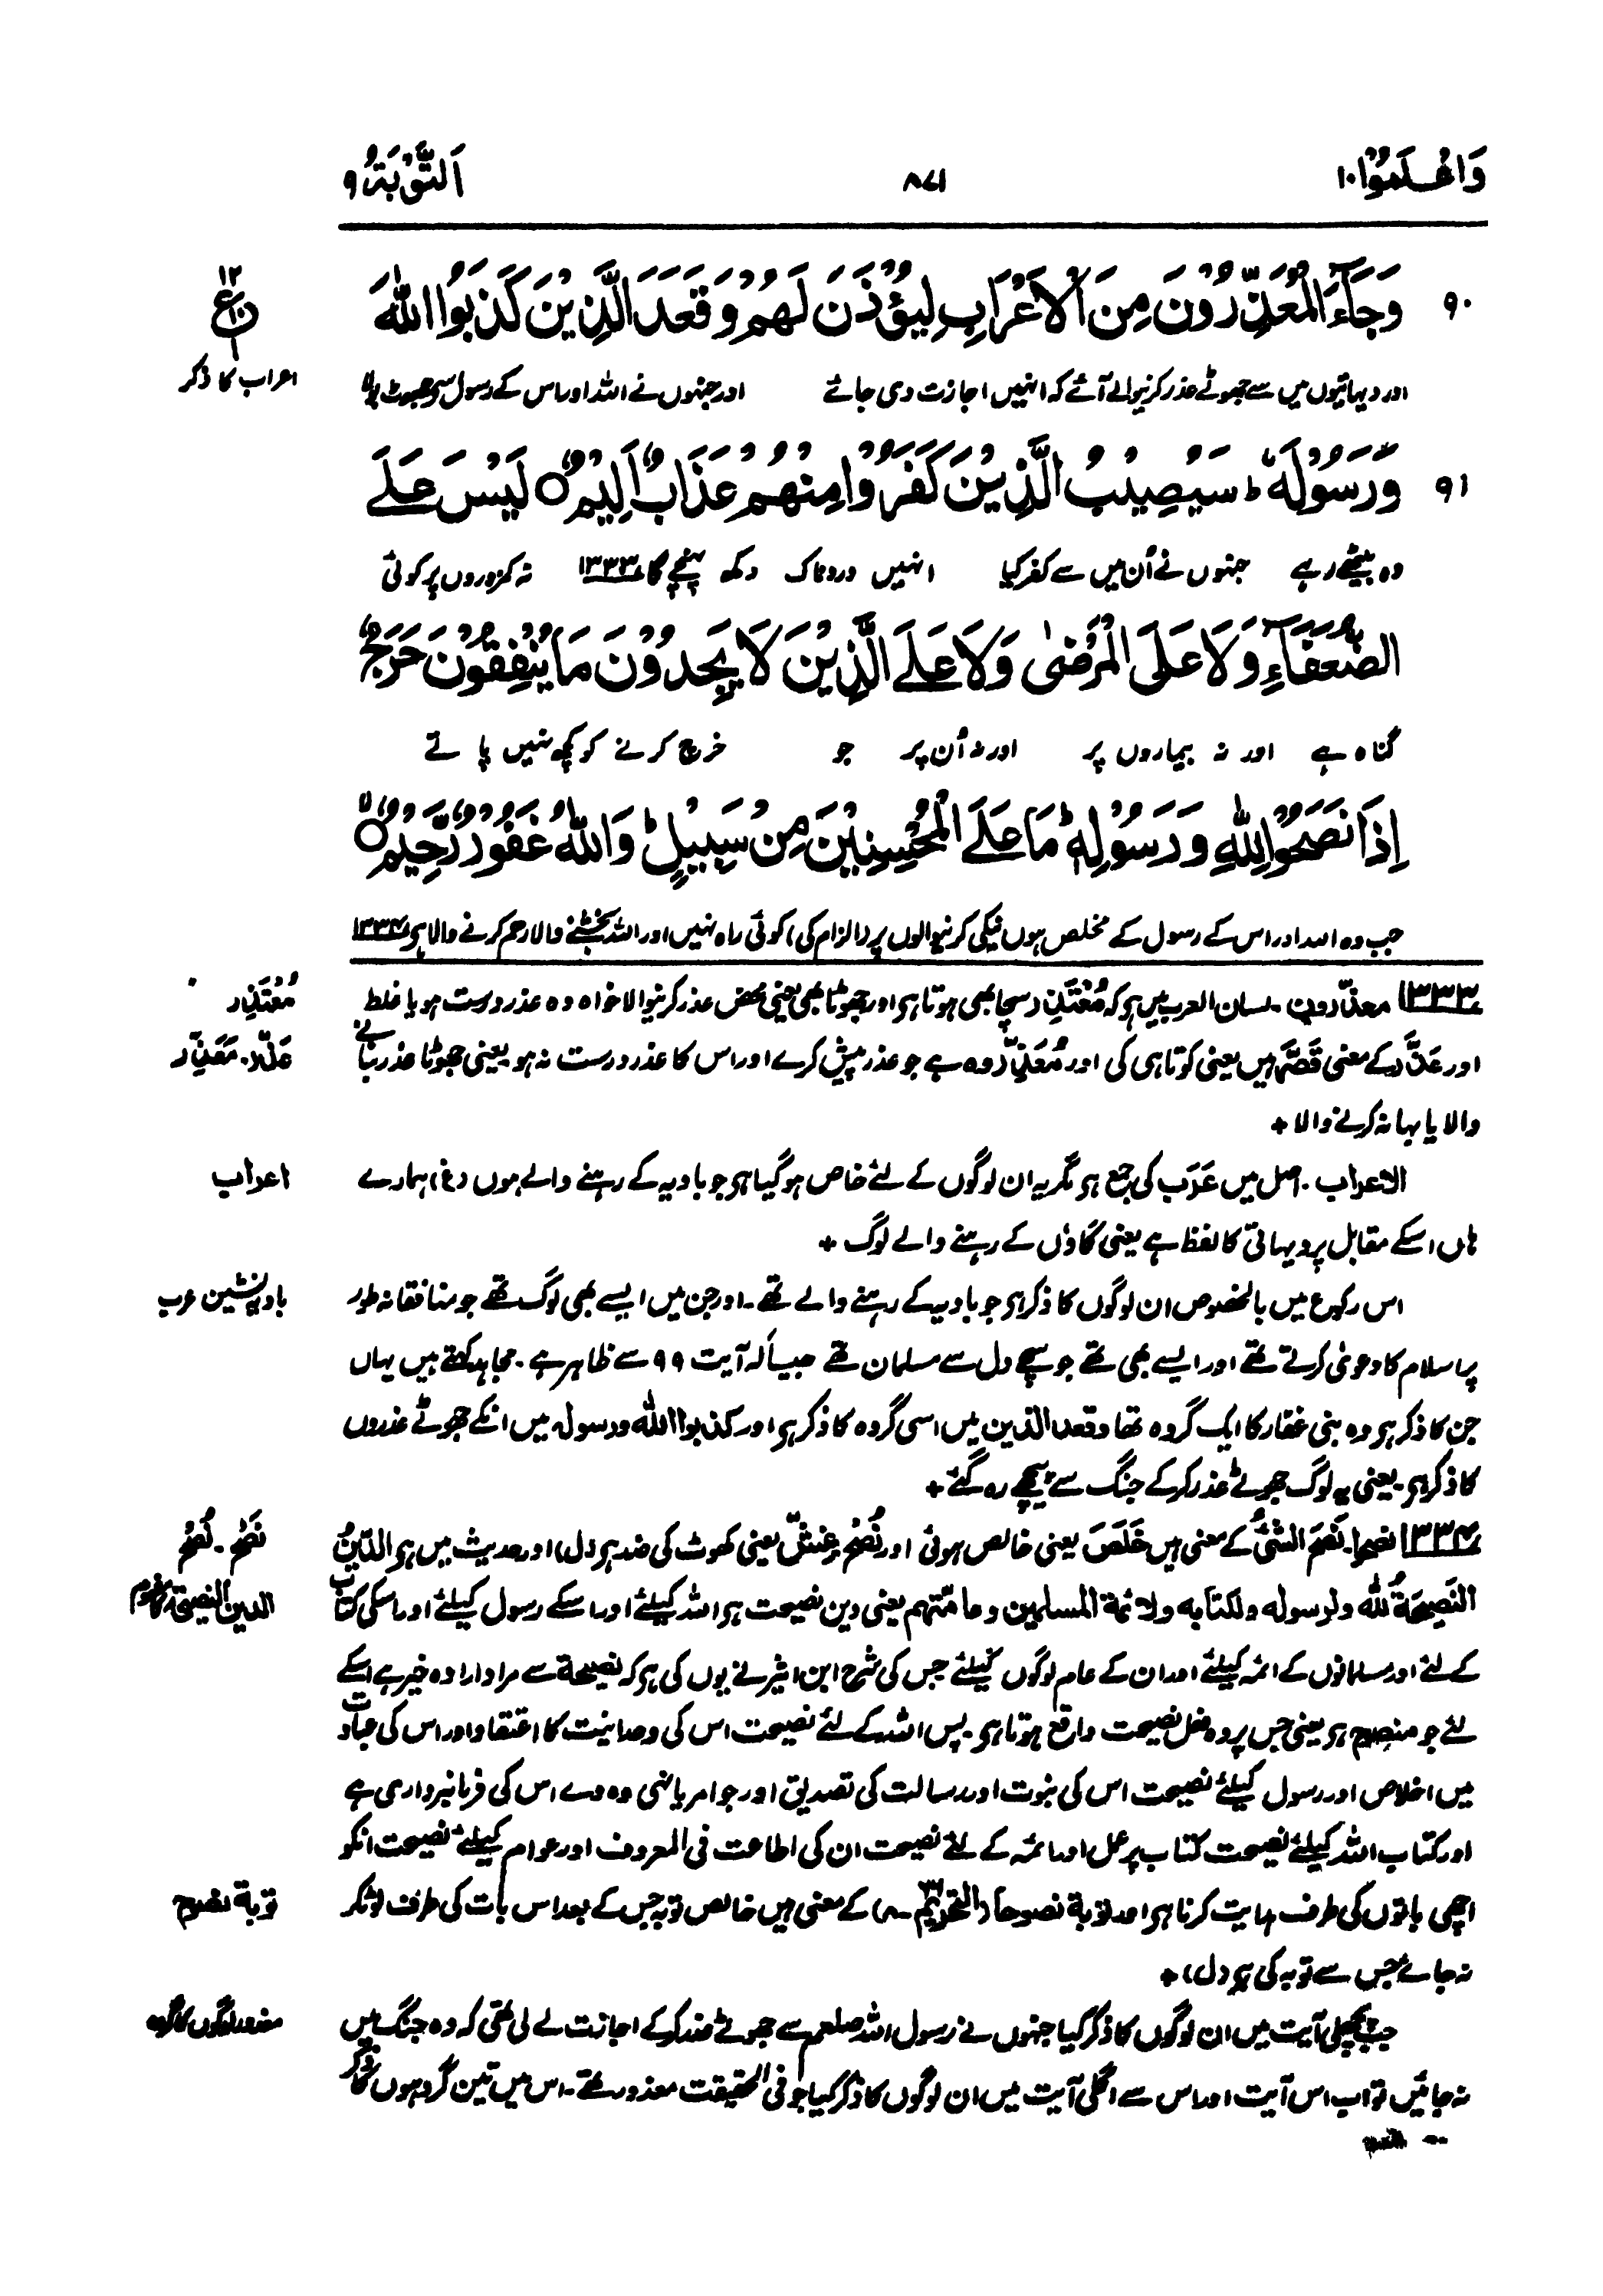 وَاعْلَمُوْا ۱۰
۸۷۱
اَلتَّوْبَةُ ۹
۹۰ وَجَآءَ الْمُعَذِّرُوْنَ مِنَ الْاَعْرَابِ لِيُؤْذَنَ لَهُمْ وَقَعَدَ الَّذِيْنَ كَذَبُوا اللّٰهَ
اور دیہاتیوں میں سے جھوٹے عذر کرنیوالے آئے کہ انہیں اجازت دی جائے اور جنہوں نے اللہ اور اس کے رسول سے جھوٹ بولا
۹۱ وَرَسُوْلَهٗ ؕ سَيُصِيْبُ الَّذِيْنَ كَفَرُوْا مِنْهُمْ عَذَابٌ اَلِيْمٌ ○ لَيْسَ عَلَے
وہ بیٹھے رہے جنہوں نے اُن میں سے کفر کیا انہیں دردناک دکھ پہنچے گا ۱۳۳۳ نہ کمزوروں پر کوئی
الضُّعَفَآءِ وَلَا عَلَى الْمَرْضٰى وَلَا عَلَے الَّذِيْنَ لَا يَجِدُوْنَ مَا يُنْفِقُوْنَ حَرَجٌ
گناہ ہے اور نہ بیماروں پر اور نہ اُن پر جو خرچ کرنے کو کچھ نہیں پاتے
اِذَا نَصَحُوْا لِلّٰهِ وَرَسُوْلِهٖ ؕ مَا عَلَے الْمُحْسِنِيْنَ مِنْ سَبِيْلٍ ؕ وَاللّٰهُ غَفُوْرٌ رَّحِيْمٌ ○
جب وہ اللہ اور اس کے رسول کے مخلص ہوں نیکی کرنیوالوں پر (الزام کی) کوئی راہ نہیں اور اللہ بخشنے والا رحم کرنے والا ہے ۱۳۳۴
۱۳۳۳ معذّرون۔ لسان العرب میں ہے کہ مُعْتَذِر سچا بھی ہوتا ہے اور جھوٹا بھی یعنی محض عذر کرنیوالا خواہ وہ عذر درست ہو یا غلط
اور عَذَّرَ کے معنی قَصَّرَ ہیں یعنی کوتاہی کی اور مُعَذِّر وہ ہے جو عذر پیش کرے اور اس کا عذر درست نہ ہو یعنی جھوٹا عذر بنانے
والا یا بہانہ کرنے والا +
الاعراب۔ اصل میں عَرَب کی جمع ہے مگر یہ ان لوگوں کے لئے خاص ہو گیا ہے جو بادیہ کے رہنے والے ہوں (غ) ہمارے
ہاں اسکے مقابل پر دیہاتی کا لفظ ہے یعنی گاؤں کے رہنے والے لوگ +
اس رکوع میں بالخصوص ان لوگوں کا ذکر ہے جو بادیہ کے رہنے والے تھے۔ اور جن میں ایسے بھی لوگ تھے جو منافقانہ طور
پر اسلام کا دعویٰ کرتے تھے اور ایسے بھی تھے جو سچے دل سے مسلمان تھے جیسا کہ آیت ۹۹ سے ظاہر ہے۔ مجاہد کہتے ہیں یہاں
جن کا ذکر ہے وہ بنی غفار کا ایک گروہ تھا وقعد الذین میں اسی گروہ کا ذکر ہے اور کذبوا اللّٰه ورسوله میں انکے جھوٹے عذروں
کا ذکر ہے۔ یعنی یہ لوگ جھوٹے عذر کر کے جنگ سے پیچھے رہ گئے +
۱۳۳۴ نصحوا۔ نَصَحَ الشَّیُٔ کے معنی ہیں خَلَصَ یعنی خالص ہوئی اور نُصْح غِشّ یعنی کھوٹ کی ضد ہے (ل) اور حدیث میں ہے الدِّیْنُ
النَّصِیْحَةُ لِلّٰه ولرسوله ولکتابه ولائمة المسلمین وعامّتهم یعنی دین نصیحت ہے اللہ کیلئے اور اسکے رسول کیلئے اور اسکی کتاب
کے لئے اور مسلمانوں کے ائمہ کیلئے اور ان کے عام لوگوں کیلئے جس کی شرح ابن اثیر نے یوں کی ہے کہ نصیحة سے مراد ارادہ خیر ہے اسکے
لئے جو منصوح ہے یعنی جس پر وہ فعل نصیحت واقع ہوتا ہے۔ پس اللہ کے لئے نصیحت اس کی وحدانیت کا اعتقاد اور اس کی عبادت
میں اخلاص اور رسول کیلئے نصیحت اس کی نبوت اور رسالت کی تصدیق اور جو امر یا نہی وہ دے اس کی فرمانبرداری ہے
اور کتاب اللہ کیلئے نصیحت کتاب پر عمل اور ائمہ کے لئے نصیحت ان کی اطاعت فی المعروف اور عوام کیلئے نصیحت انکو
اچھی باتوں کی طرف ہدایت کرنا ہے اور توبة نصوحاً (التحریم ۸) کے معنی ہیں خالص توبہ جس کے بعد اس بات کی طرف لوٹکر
نہ جائے جس سے توبہ کی ہے (ل) +
جب پچھلی آیت میں ان لوگوں کا ذکر کیا جنہوں نے رسول اللہ صلعم سے جھوٹے عذر کر کے اجازت لے لی تھی کہ وہ جنگ میں
نہ جائیں تو اب اس آیت اور اس سے اگلی آیت میں ان لوگوں کا ذکر کیا جو فی الحقیقت معذور تھے۔ اس میں تین گروہوں کا ذکر
۱۲
ع
۱۰
۱
اعراب کا ذکر
مُعْتَذِر
عَذَّر۔ مُعَذِّر
اعراب
بادیہ نشین عرب
نَصْح۔ نُصْح
الدین النصیحة کا مفہوم
توبة نصوح
معذور لوگوں کا گروہ